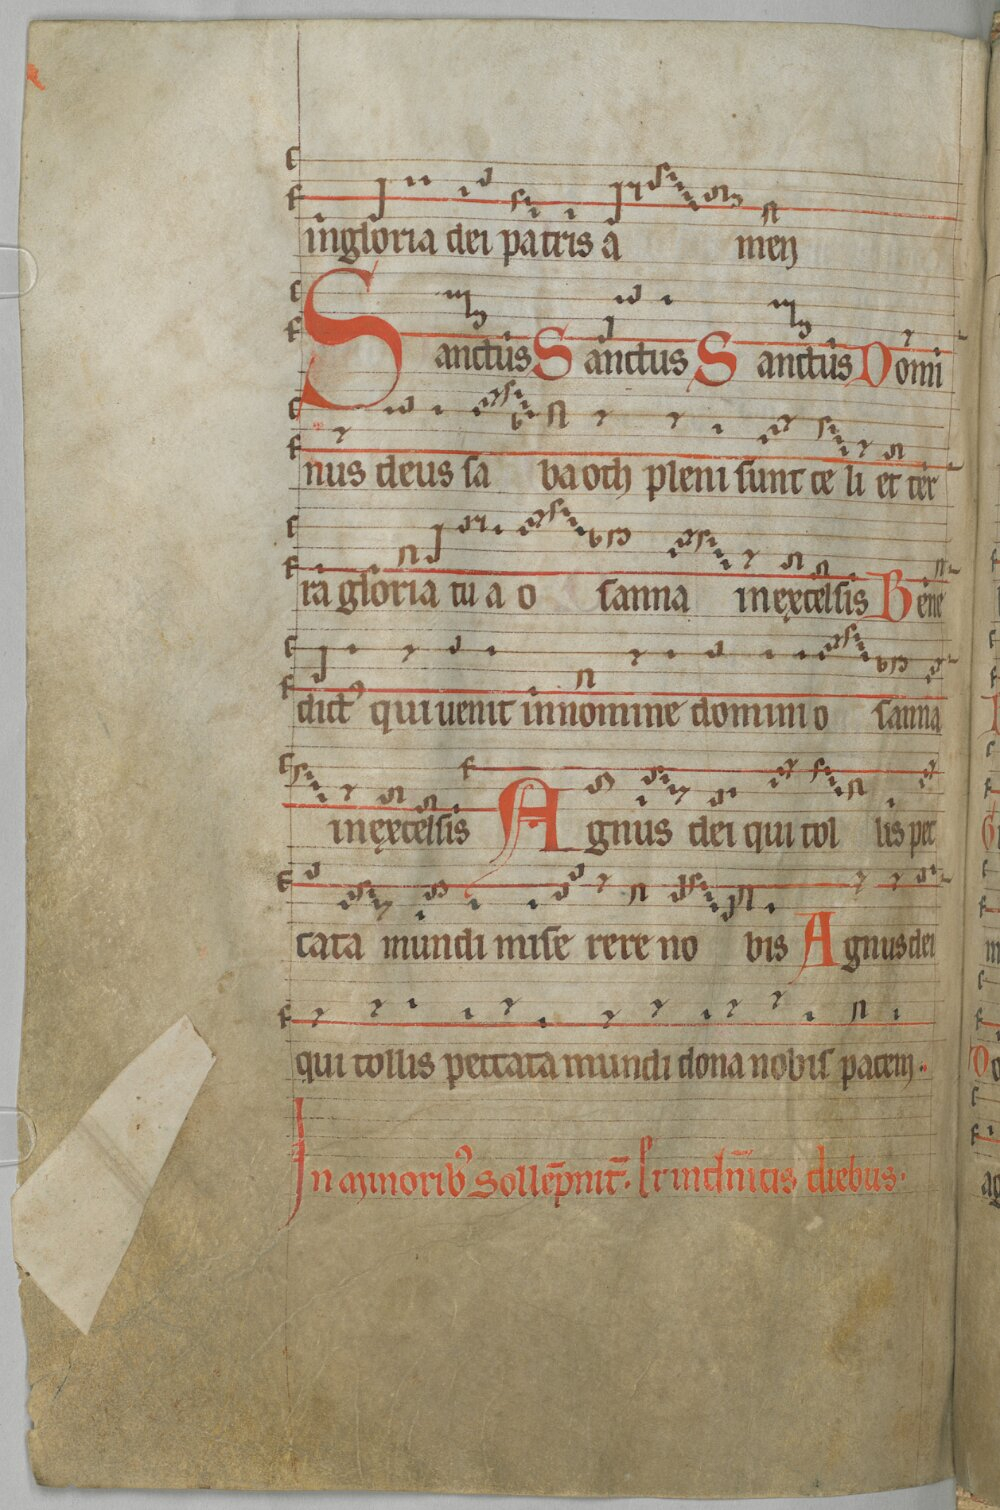 in gloria dei patris a men
Sanctus Sanctus Sanctus Domi
nus deus sa baoth pleni sunt ce li et ter
ra gloria tu a o sanna in excelsis Bene
dictꝰ qui uenit in nomine domini o sanna
in excelsis Agnus dei qui tol lis pec
cata mundi mise rere no bis Agnus dei
qui tollis peccata mundi dona nobis pacem.
In minoribꝰ sollēpnit̄. diebus.